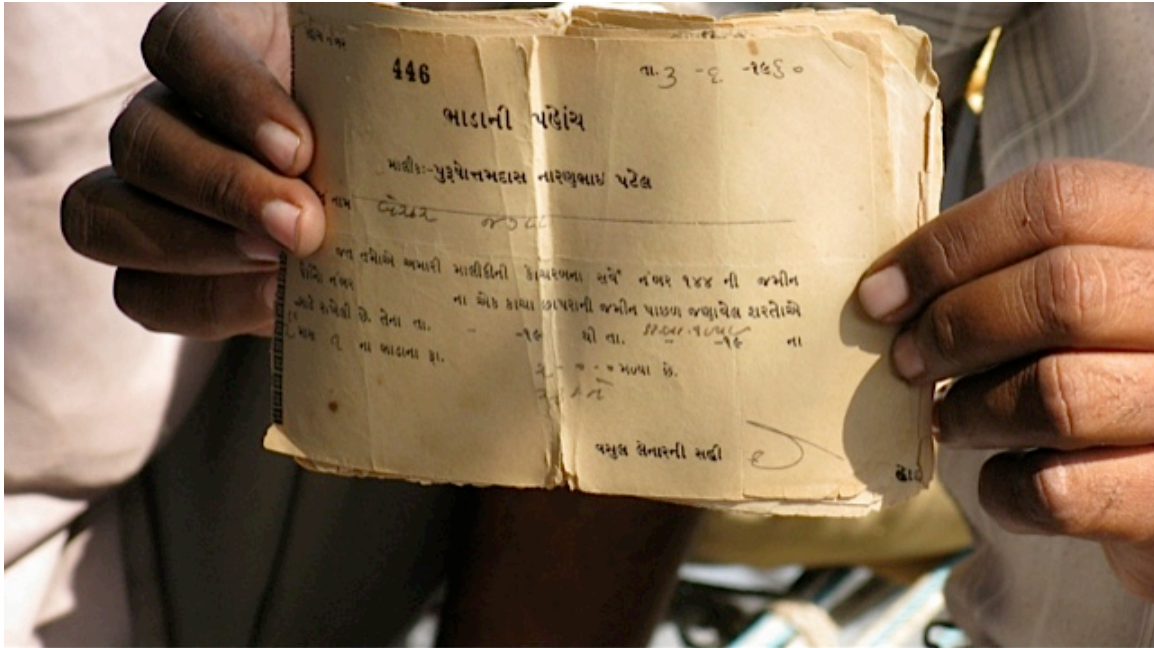 446
તા. 3 - ૬ -૧૯૬૦
ભાડાની પહોંચ
માલીકઃ-પુરૂષોત્તમદાસ નારણભાઇ પટેલ
નામ
જત તમોએ અમારી માલીકીની કાચરબના સર્વે નંબર ૧૪૪ ની જમીન
નંબર ના એક કાચા છાપરાની જમીન પાછળ જણાવેલ શરતોએ
રાખેલી છે. તેના તા. - -૧૯ થી તા. -૧૯ ના
માસ ૧ ના ભાડાના રૂા.
૨-૦-૦ મળ્યા છે.
વસુલ લેનારની સહી